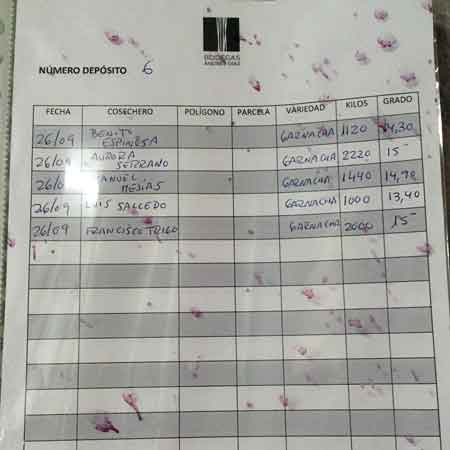 BODEGAS
ANDRÉS DÍAZ
NÚMERO DEPÓSITO 6
FECHA COSECHERO POLÍGONO PARCELA VARIEDAD KILOS GRADO
26/09 BENITO ESPINOSA GARNACHA 1120 14,30
26/09 AURORA SERRANO GARNACHA 2220 15
26/0 MANUEL MESIAS GARNACHA 1440 14,90
26/09 LUIS SALCEDO GARNACHA 1000 13,40
26/09 FRANCISCO TRIGO GARNACHA 2000 15